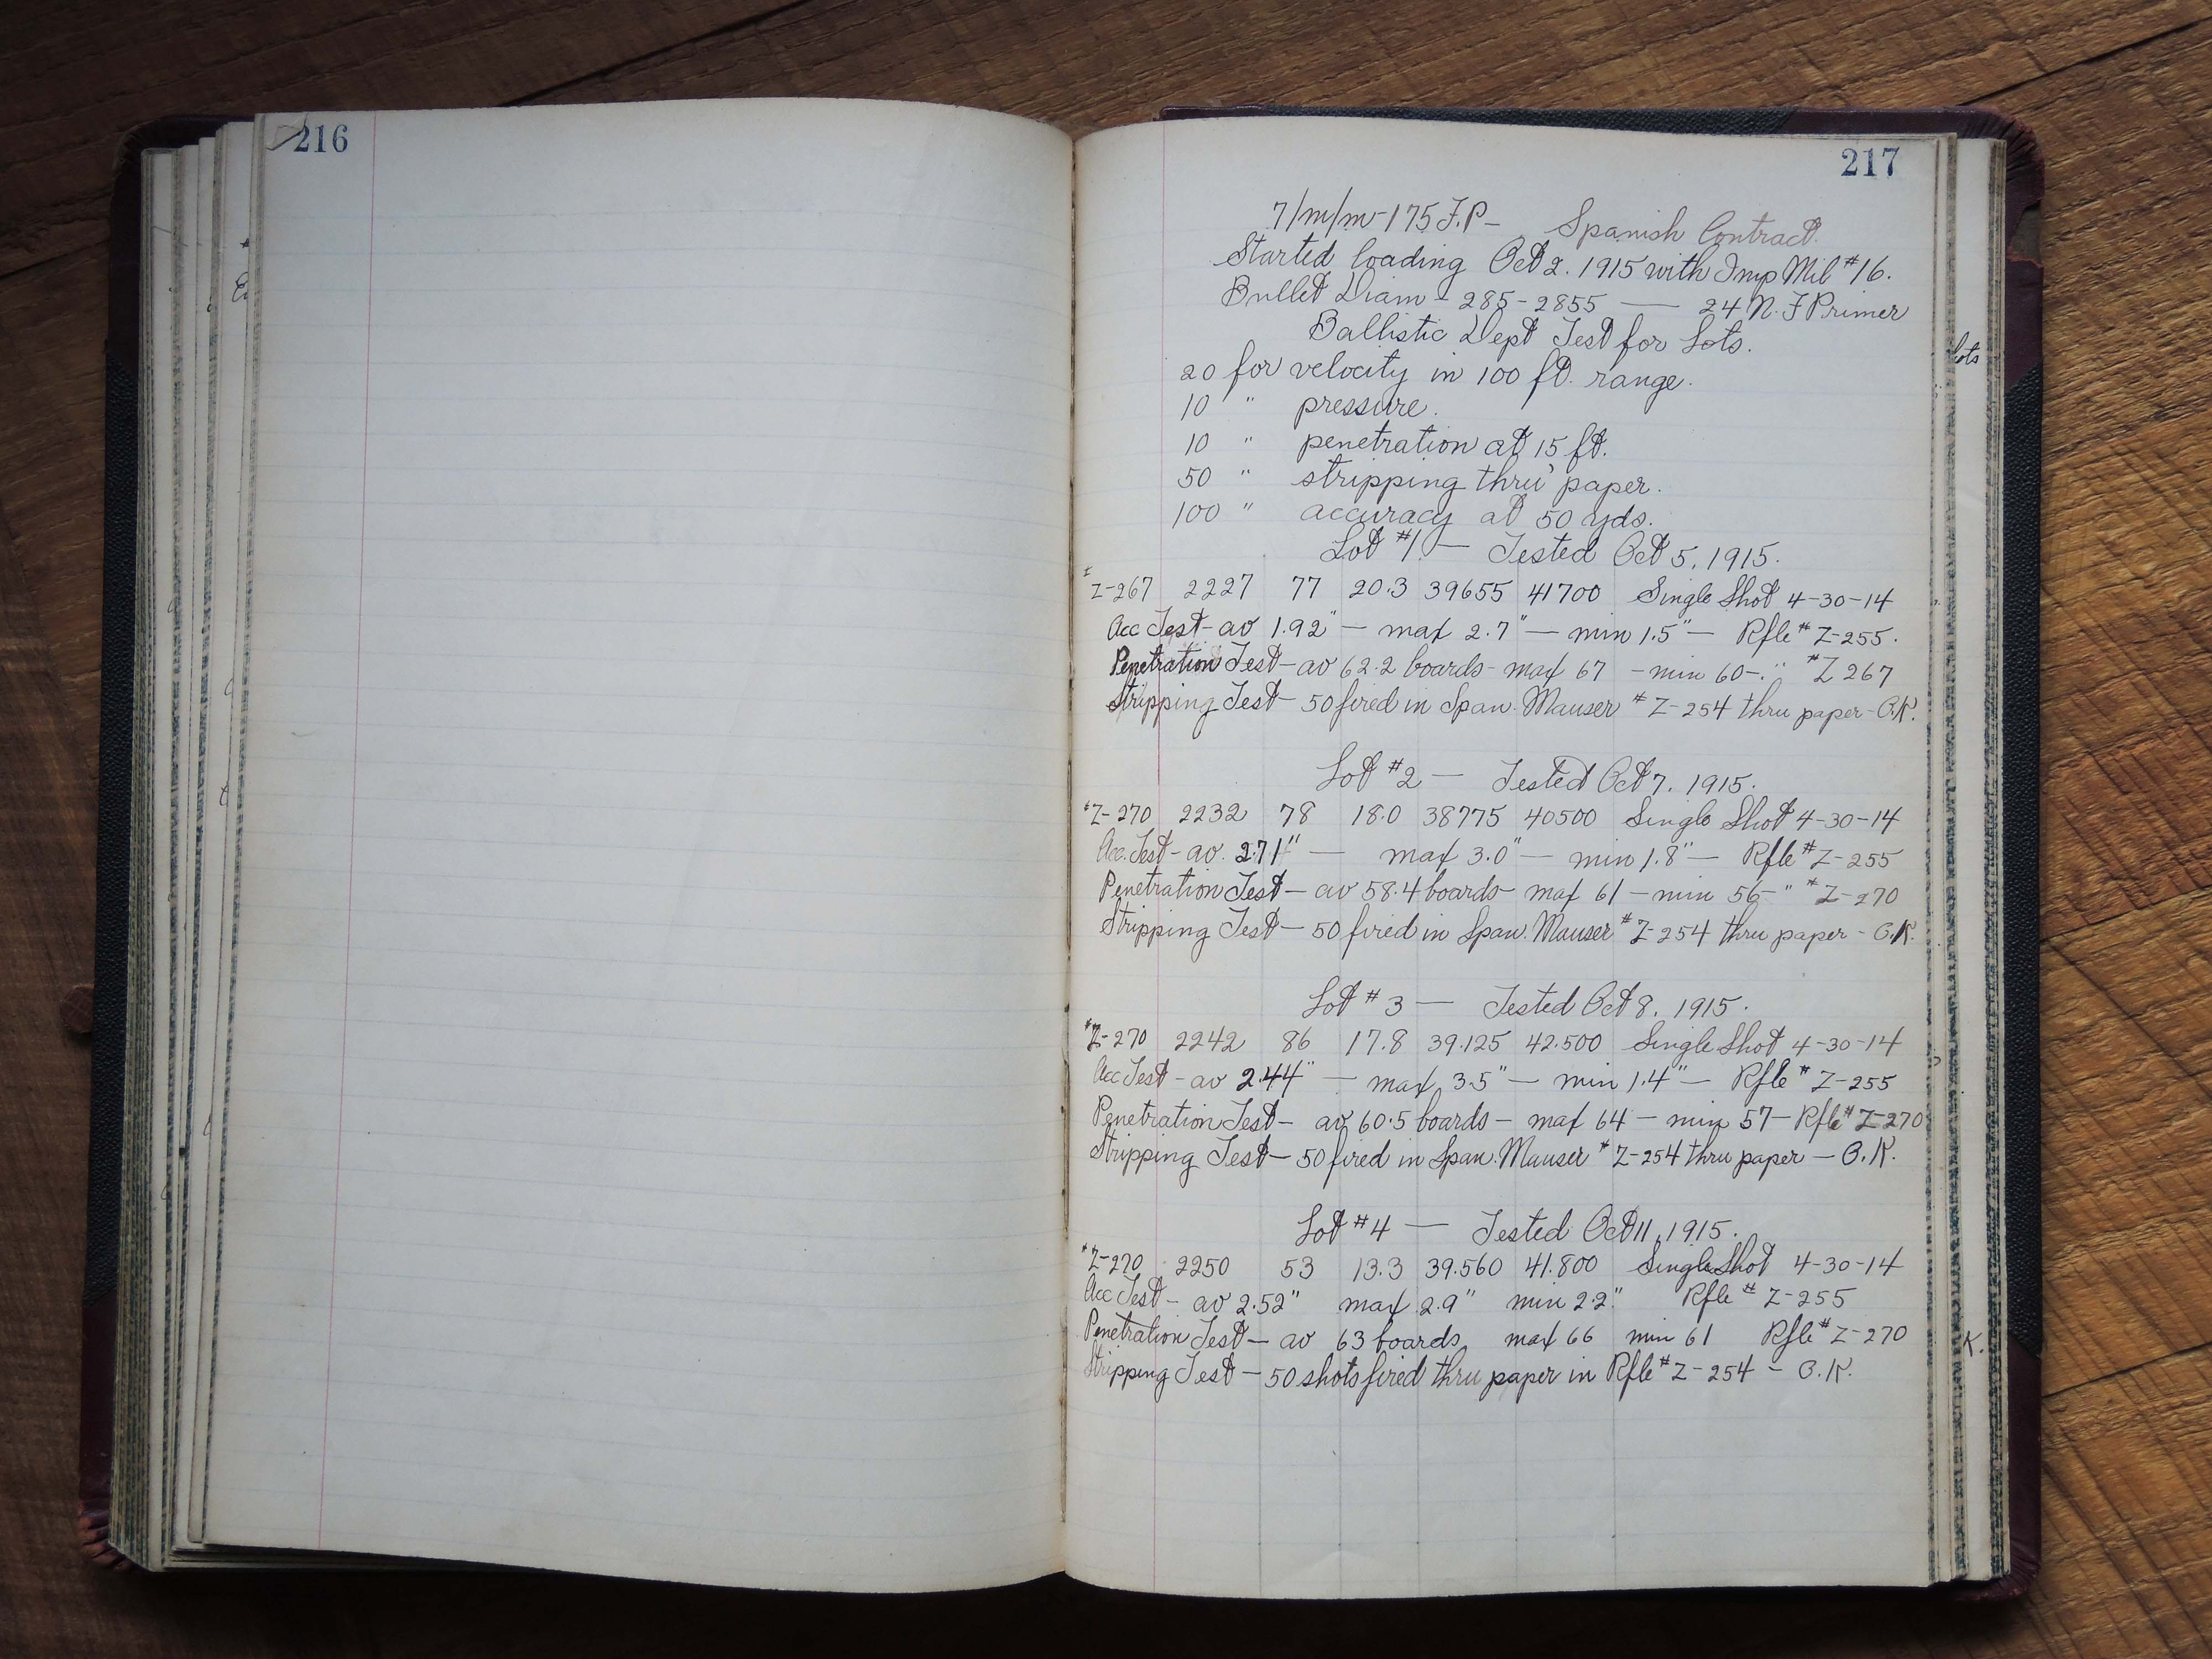 216
217
7/m/m-175 F.P- Spanish Contract.
Started loading Oct 2. 1915 with Imp Mil #16.
Bullet Diam - 285-2855 — 24 N.F Primer
Ballistic Dept Test for Lots.
20 for velocity in 100 ft. range.
10 " pressure.
10 " penetration at 15 ft.
50 " stripping thru paper.
100 " accuracy at 50 yds.
Lot #1 — Tested Oct 5, 1915.
#Z-267 2227 77 20.3 39655 41700 Single Shot 4-30-14
Acc Test - av 1.92" — max 2.7" — min 1.5" — Rfle # Z-255.
Penetration Test - av 62.2 boards - max 67 - min 60 - " #Z 267
Stripping Test - 50 fired in Span. Mauser # Z-254 thru paper - O.K.
Lot #2 — Tested Oct 7, 1915.
#Z-270 2232 78 18.0 38775 40500 Single Shot 4-30-14
Acc. Test - av. 2.71" — max 3.0" — min 1.8" — Rfle #Z-255
Penetration Test - av 58.4 boards - max 61 - min 56 - " #Z-270
Stripping Test - 50 fired in Span. Mauser #Z-254 thru paper - O.K.
Lot #3 — Tested Oct 8, 1915.
#Z-270 2242 86 17.8 39.125 42.500 Single Shot 4-30-14
Acc Test - av 2.44" — max 3.5" — min 1.4" — Rfle # Z-255
Penetration Test - av 60.5 boards - max 64 - min 57 - Rfle #Z-270
Stripping Test - 50 fired in Span. Mauser # Z-254 thru paper — O.K.
Lot #4 — Tested Oct 11, 1915.
#Z-270 2250 53 13.3 39.560 41.800 Single Shot 4-30-14
Acc Test - av 2.52" max 2.9" min 2.2" Rfle # Z-255
Penetration Test - av 63 boards max 66 min 61 Rfle #Z-270
Stripping Test - 50 shots fired thru paper in Rfle #Z-254 - O.K.
lots
K.